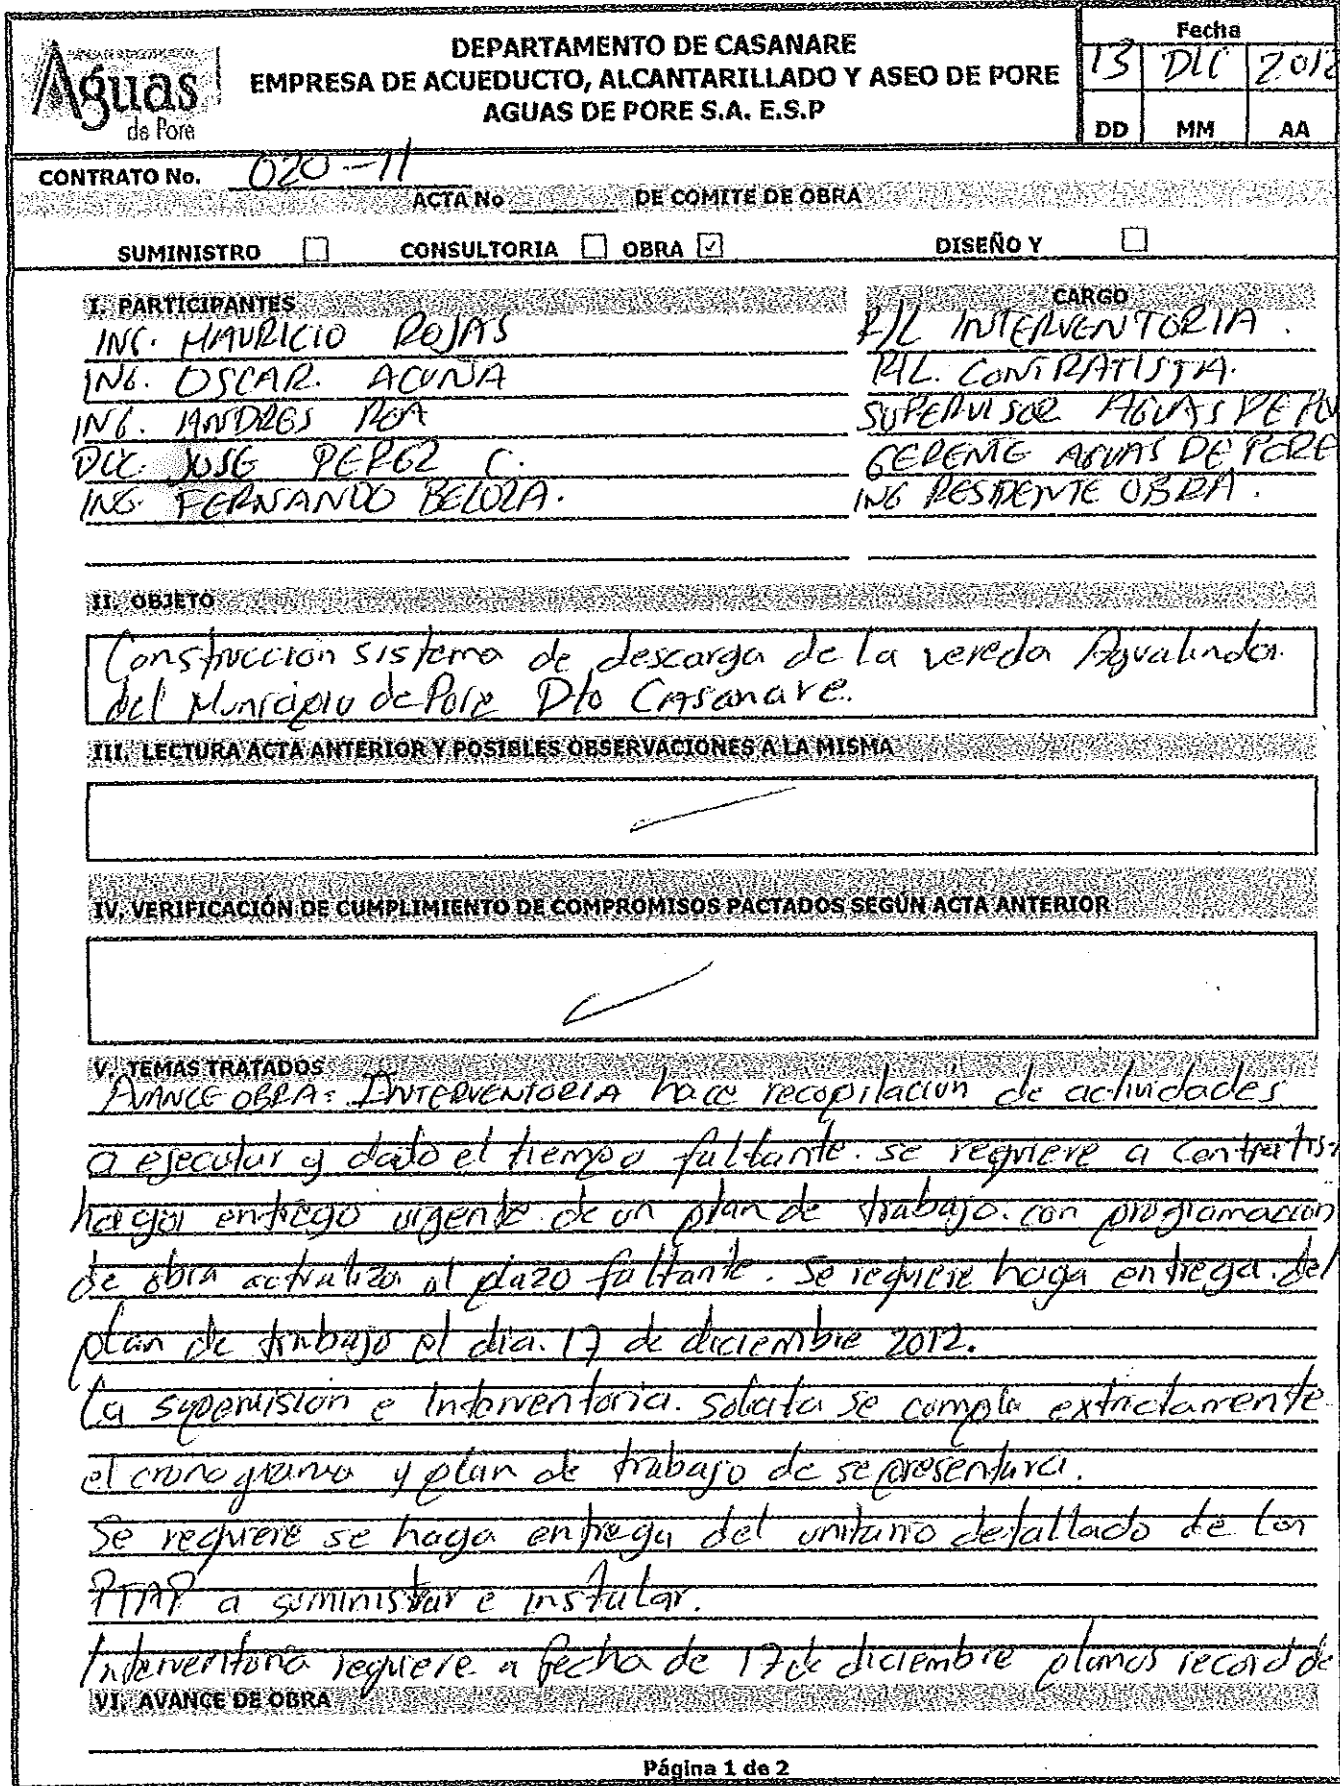 Aguas
de Pore
DEPARTAMENTO DE CASANARE
EMPRESA DE ACUEDUCTO, ALCANTARILLADO Y ASEO DE PORE
AGUAS DE PORE S.A. E.S.P
Fecha
13 DIC 2012
DD MM AA
CONTRATO No. 020-11
ACTA No DE COMITE DE OBRA
SUMINISTRO CONSULTORIA OBRA DISEÑO Y
I. PARTICIPANTES CARGO
ING. MAURICIO ROJAS R/L INTERVENTORIA.
ING. OSCAR. ACUÑA R/L. CONTRATISTA.
ING. ANDRES ROA SUPERVISOR AGUAS DE PO
DCC. JOSE PEREZ C. GERENTE AGUAS DE PORE
ING. FERNANDO ING RESIDENTE OBRA.
II. OBJETO
Construccion sistema de descarga de la vereda Agualinda
del Municipio de Pore Dto CASanare.
III. LECTURA ACTA ANTERIOR Y POSIBLES OBSERVACIONES A LA MISMA
IV. VERIFICACIÓN DE CUMPLIMIENTO DE COMPROMISOS PACTADOS SEGÚN ACTA ANTERIOR
V. TEMAS TRATADOS
AVANCE OBRA: INTERVENTORIA hace recopilacion de actividades
a ejecutar y dado el tiempo faltante. se requiere a Contratis
haga entrega urgente de un plan de trabajo. con programacion
de obra actualiza al plazo faltante. Se requiere haga entrega del
plan de trabajo el dia. 17 de diciembre 2012.
La supervision e Interventoria. solicita se cumpla extrictamente
el cronograma y plan de trabajo de se presentara.
Se requiere se haga entrega del unitario detallado de las
PTAP a suministrar e instalar.
Interventoria requiere a fecha de 17 de diciembre planos record de
VI. AVANCE DE OBRA
Página 1 de 2